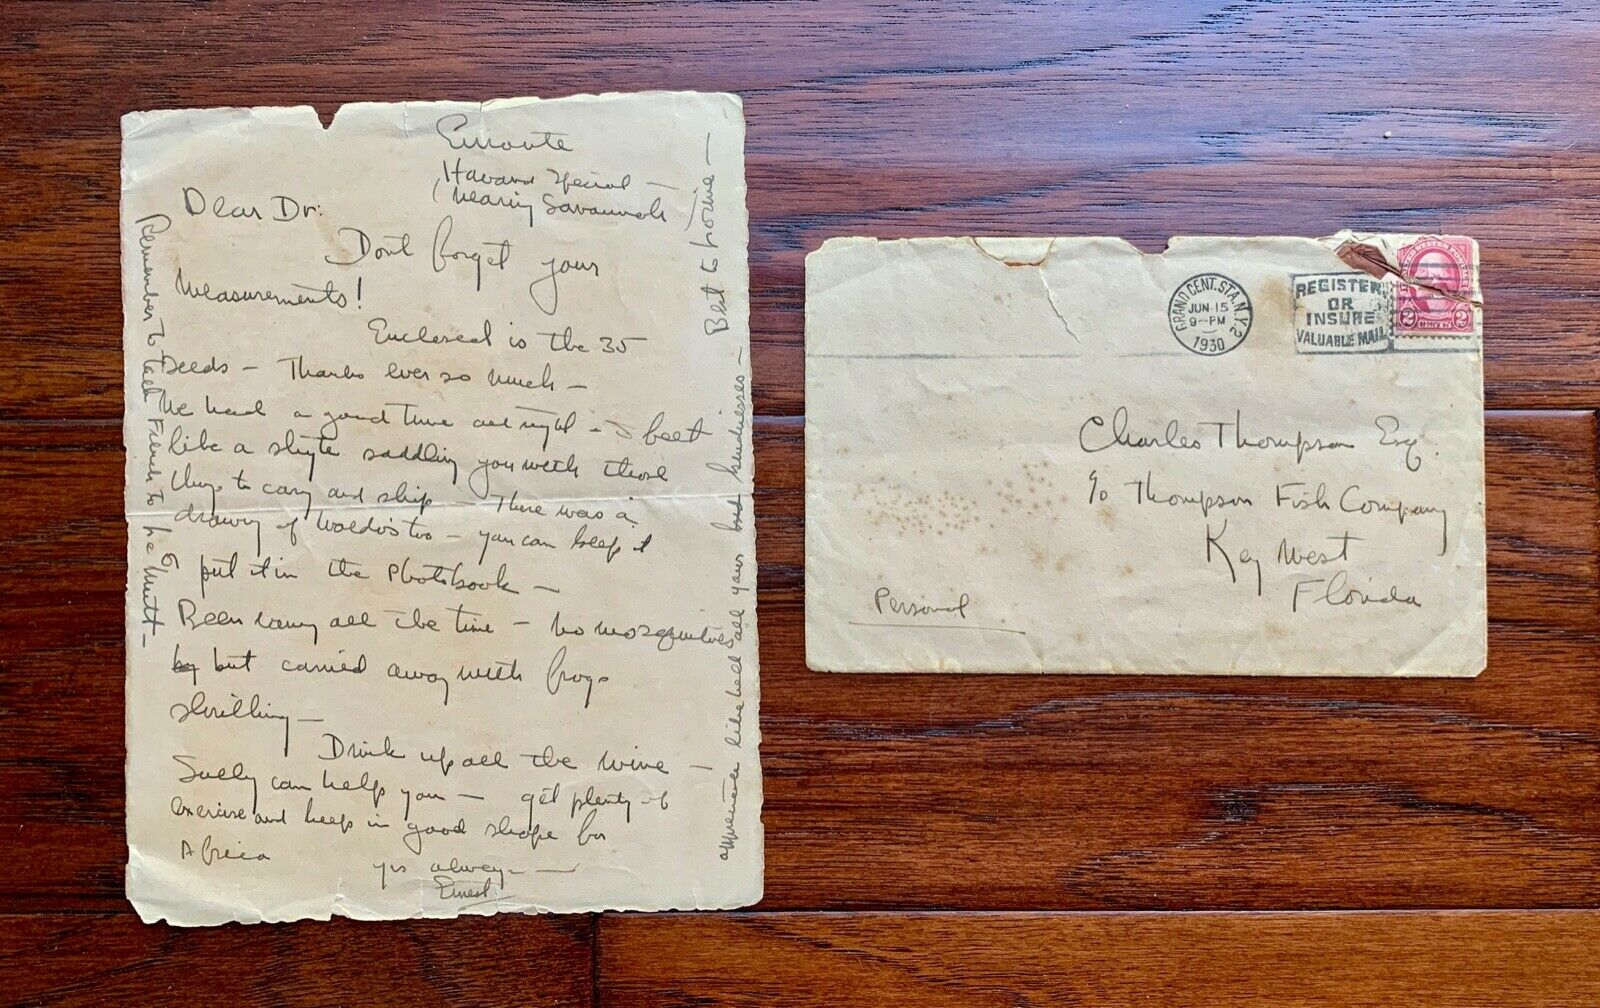 Enroute
Havana Special —
nearing Savannah
Dear Dr:
Dont forget your
Measurements!
Enclosed is the 35
Seeds — Thanks ever so much —
We had a good time all right — I feel
like a  saddling you with those
things to carry and ship — There was a
drawing of Waldo's too — you can keep it
put it in the Photobook —
Been rainy all the time — no mosquitoes
but carried away with frogs
shrilling —
Drink up all the wine —
Sully can help you — get plenty of
exercise and keep in good shape for
Africa
yrs always —
Ernest
Remember to tell French to he
appreciates like hell all your kindnesses —
Best to Lorine —
GRAND CENT. STA. N.Y. 2
JUN 15
9-PM
1930
REGISTER
OR
INSURE
VALUABLE MAIL
2 2
Charles Thompson Esq.
c/o Thompson Fish Company
Key West
Florida
Personal